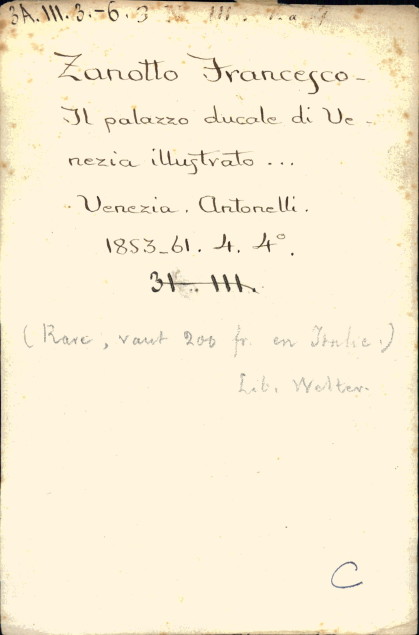 3A.III.3.-6.
Zanotto Francesco-
Il palazzo ducale di Ve-
nezia illustrato ...
Venezia. Antonelli.
1853-61. 4. 4°.
31-III.
(Rare, vaut 200 fr. en Italie.)
Lib. Welter.
C